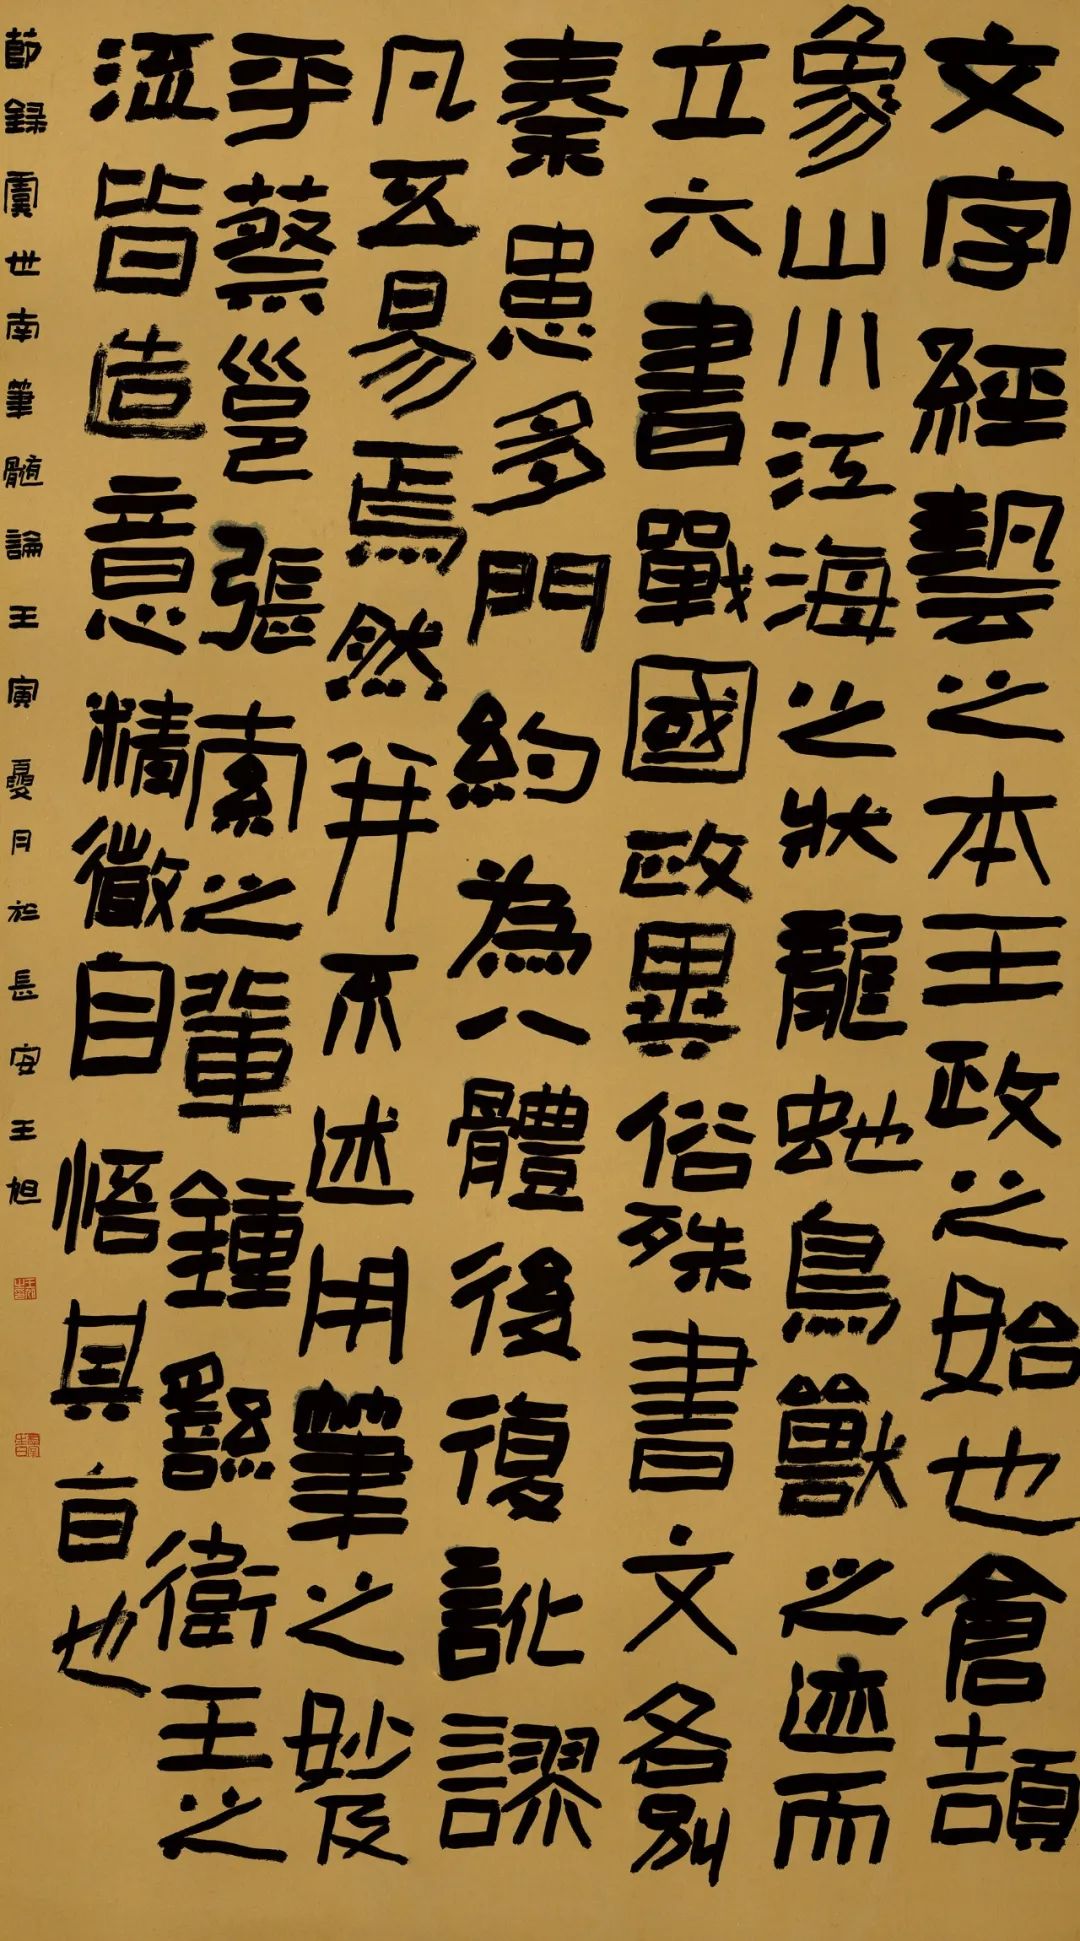 文字經藝之本王政之始也倉頡
象山川江海之狀龍虵鳥獸之迹而
立六書戰國政異俗殊書文各別
秦患多門約為八體後復訛謬
凡五易焉然并不述用筆之妙及
乎蔡邕張索之輩鍾繇衛王之
流皆造意精微自悟其旨也
節録虞世南筆髄論壬寅夏月於長安王旭